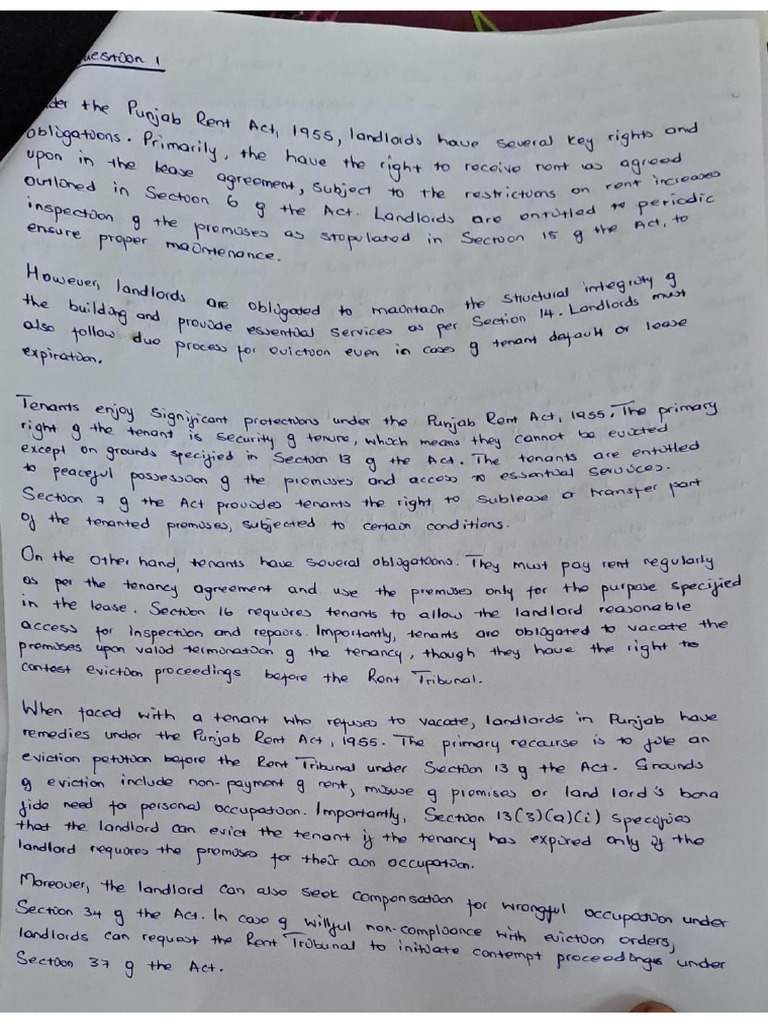 uestion 1
der the Punjab Rent Act, 1955, landlords have several key rights and
obligations. Primarily, the have the right to receive rent as agreed
upon in the lease agreement, subject to the restrictions on rent increases
outlined in Section 6 of the Act. Landlords are entitled to periodic
inspection of the premises as stipulated in Section 15 of the Act, to
ensure proper maintenance.
However, landlords are obligated to maintain the structural integrity of
the building and provide essential services as per Section 14. Landlords must
also follow due process for eviction even in cases of tenant default or lease
expiration.
Tenants enjoy significant protections under the Punjab Rent Act, 1955. The primary
right of the tenant is security of tenure, which means they cannot be evicted
except on grounds specified in Section 13 of the Act. The tenants are entitled
to peaceful possession of the premises and access to essential services.
Section 7 of the Act provides tenants the right to sublease or transfer part
of the tenanted premises, subjected to certain conditions.
On the other hand, tenants have several obligations. They must pay rent regularly
as per the tenancy agreement and use the premises only for the purpose specified
in the lease. Section 16 requires tenants to allow the landlord reasonable
access for inspection and repairs. Importantly, tenants are obligated to vacate the
premises upon valid termination of the tenancy, though they have the right to
contest eviction proceedings before the Rent Tribunal.
When faced with a tenant who refuses to vacate, landlords in Punjab have
remedies under the Punjab Rent Act, 1955. The primary recourse is to file an
eviction petition before the Rent Tribunal under Section 13 of the Act. Grounds
of eviction include non-payment of rent, misuse of premises or land lord's bona
fide need for personal occupation. Importantly, Section 13(3)(a)(i) specifies
that the landlord can evict the tenant if the tenancy has expired only if the
landlord requires the premises for their own occupation.
Moreover, the landlord can also seek compensation for wrongful occupation under
Section 34 of the Act. In case of willful non-compliance with eviction orders,
landlords can request the Rent Tribunal to initiate contempt proceedings under
Section 37 of the Act.